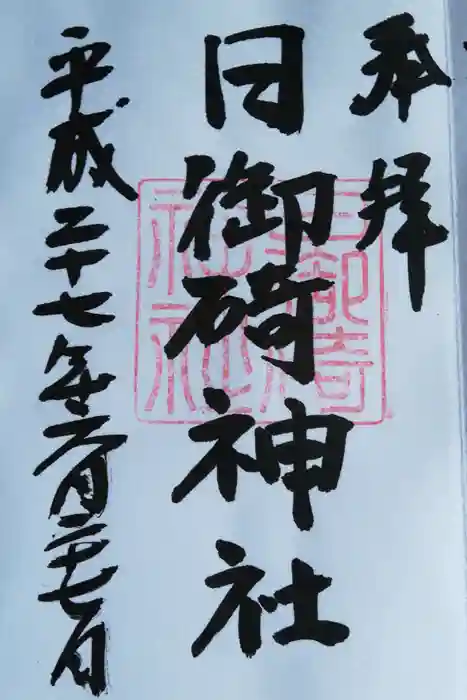 奉拝
日御碕神社
平成二十七年六月二十七日
日御碕
神社